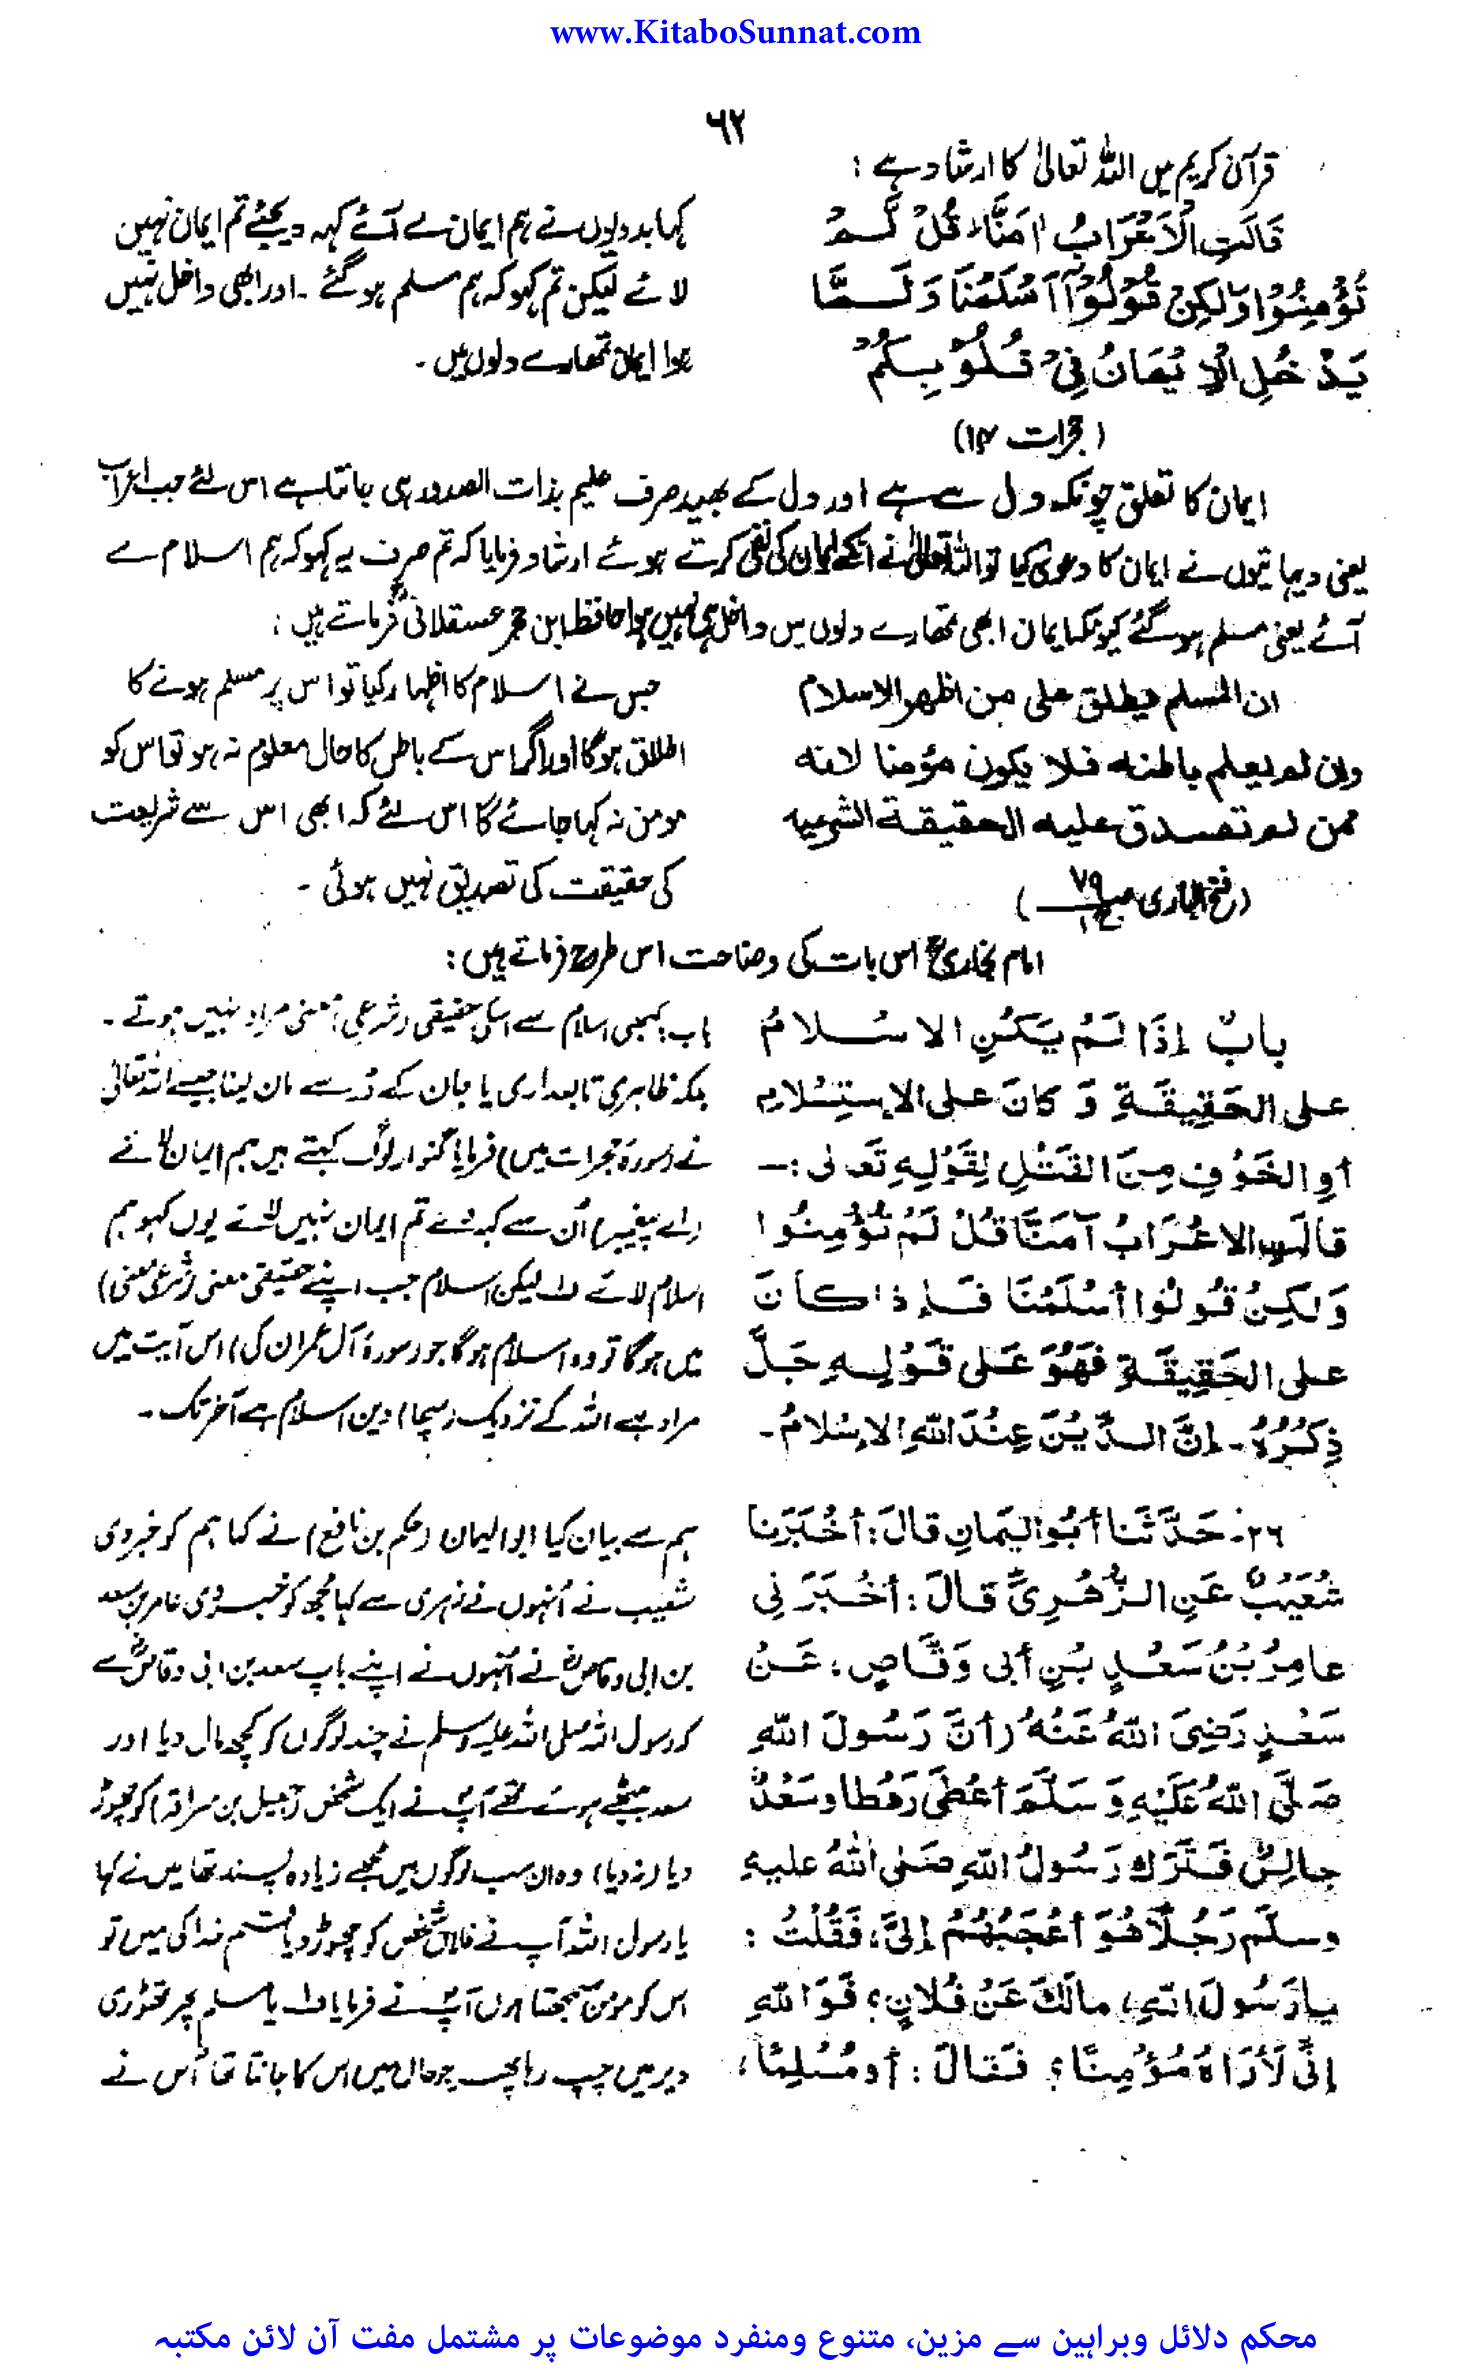 www.KitaboSunnat.com
٦٢
قرآن کریم میں اللہ تعالیٰ کا ارشاد ہے :
قَالَتِ الْاَعْرَابُ اٰمَنَّاء قُلْ لَّمْ
تُؤْمِنُوْا وَلٰكِنْ قُوْلُوْٓا اَسْلَمْنَا وَلَمَّا
يَدْخُلِ الْاِيْمَانُ فِيْ قُلُوْبِكُمْ
(حجرات ۱۴)
کہا بدویوں نے ہم ایمان لے آئے کہہ دیجئے تم ایمان نہیں
لائے لیکن تم کہو کہ ہم مسلم ہو گئے ۔ اور ابھی داخل نہیں
ہوا ایمان تمھارے دلوں میں ۔
ایمان کا تعلق چونکہ دل سے ہے اور دل کے بھید صرف علیم بذات الصدور ہی جانتا ہے اس لئے جب اعراب
یعنی دیہاتیوں نے ایمان کا دعویٰ کیا تو اللہ تعالیٰ نے انکے ایمان کی نفی کرتے ہوئے ارشاد فرمایا کہ تم صرف یہ کہو کہ ہم اسلام لے
آئے یعنی مسلم ہو گئے کیونکہ ایمان ابھی تمھارے دلوں میں داخل ہی نہیں ہوا حافظ ابن حجر عسقلانیؒ فرماتے ہیں :
ان المسلم يطلق على من اظهر الاسلام
وان لم يعلم باطنه فلا يكون مؤمنا لانه
ممن لم تصدق عليه الحقيقة الشرعيه
(فتح الباری ص ۷۹ ج ۱)
جس نے اسلام کا اظہار کیا تو اس پر مسلم ہونے کا
اطلاق ہو گا اور اگر اس کے باطن کا حال معلوم نہ ہو تو اس کو
مومن نہ کہا جائے گا اس لئے کہ ابھی اس سے شریعت
کی حقیقت کی تصدیق نہیں ہوئی ۔
امام بخاریؒ اس بات کی وضاحت اس طرح فرماتے ہیں :
بابٌ إذَا لَمْ يَكُنِ الاسْلامُ
على الحَقِيقَةِ وَ كانَ على الإستِسْلامِ
أوِ الخَوْفِ مِنَ القَتْلِ لِقَوْلِهِ تَعالى :—
قالَتِ الاعْرَابُ آمَنَّا قُلْ لَمْ تُؤْمِنُوا
وَلكِنْ قُولُوا أسْلَمْنَا فَإِذا كانَ
على الحَقِيقَةِ فَهُوَ عَلى قَوْلِهِ جَلَّ
ذِكْرُهُ ۔ إنَّ الدِّيْنَ عِنْدَ اللّهِ الإسْلامُ ۔
باب : کبھی اسلام سے اسکے حقیقی (شرعی) معنی مراد نہیں ہوتے ۔
بلکہ ظاہری تابعداری یا جان کے ڈر سے مان لینا جیسے اللہ تعالیٰ
نے (سورۂ حجرات میں) فرمایا گنوار لوگ کہتے ہیں ہم ایمان لائے
(اے پیغمبر) اُن سے کہہ دے تم ایمان نہیں لائے یوں کہو ہم
اسلام لائے لیکن اسلام جب اپنے حقیقی معنی (شرعی معنی)
میں ہو گا تو وہ اسلام ہو گا جو (سورۂ آل عمران کی) اس آیت میں
مراد ہے اللہ کے نزدیک (سچا) دین اسلام ہے آخر تک ۔
۲۶۔ حَدَّثَنا أبُو اليَمانِ قالَ : أخْبَرَنا
شُعَيْبٌ عَنِ الزُّهْرِيِّ قالَ : أخْبَرَنِي
عامِرُ بْنُ سَعْدِ بْنِ أبي وَقَّاصٍ ، عَنْ
سَعْدٍ رَضِيَ اللّهُ عَنْهُ أنَّ رَسُولَ اللّهِ
صَلَّى اللّهُ عَلَيْهِ وَسَلَّمَ أعْطَى رَهْطا وسَعْدٌ
جالِسٌ فَتَرَكَ رَسُولُ اللّهِ صَلى اللّهُ عليهِ
وسلَم رَجُلاً هُوَ أعْجَبُهُمْ إليَّ ، فَقُلْتُ :
يا رَسُولَ اللّهِ ، مالَكَ عَنْ فُلانٍ ؟ فَوَاللّهِ
إنِّي لأرَاهُ مُؤْمِنًا ؟ فَقالَ : أو مُسْلِمًا ،
ہم سے بیان کیا ابوالیمان (حکم بن نافع) نے کہا ہم کو خبر دی
شعیب نے اُنہوں نے زہری سے کہا مجھ کو خبر دی عامر بن سعد
بن ابی وقاصؓ نے اُنہوں نے اپنے باپ سعد بن ابی وقاصؓ سے
کہ رسول اللہ صلی اللہ علیہ وسلم نے چند لوگوں کو کچھ مال دیا اور
سعد بیٹھے ہوئے تھے آپؐ نے ایک شخص (جعیل بن سراقہ) کو چھوڑ
دیا (نہ دیا) وہ ان سب لوگوں میں مجھے زیادہ پسند تھا میں نے کہا
یا رسول اللہ آپ نے فلاں شخص کو چھوڑ دیا قسم خدا کی میں تو
اس کو مومن سمجھتا ہوں آپؐ نے فرمایا یا مسلم پھر تھوڑی
دیر میں چپ رہا پھر جو حال میں اس کا جانتا تھا اُس نے
محکم دلائل وبراہین سے مزین، متنوع ومنفرد موضوعات پر مشتمل مفت آن لائن مکتبہ